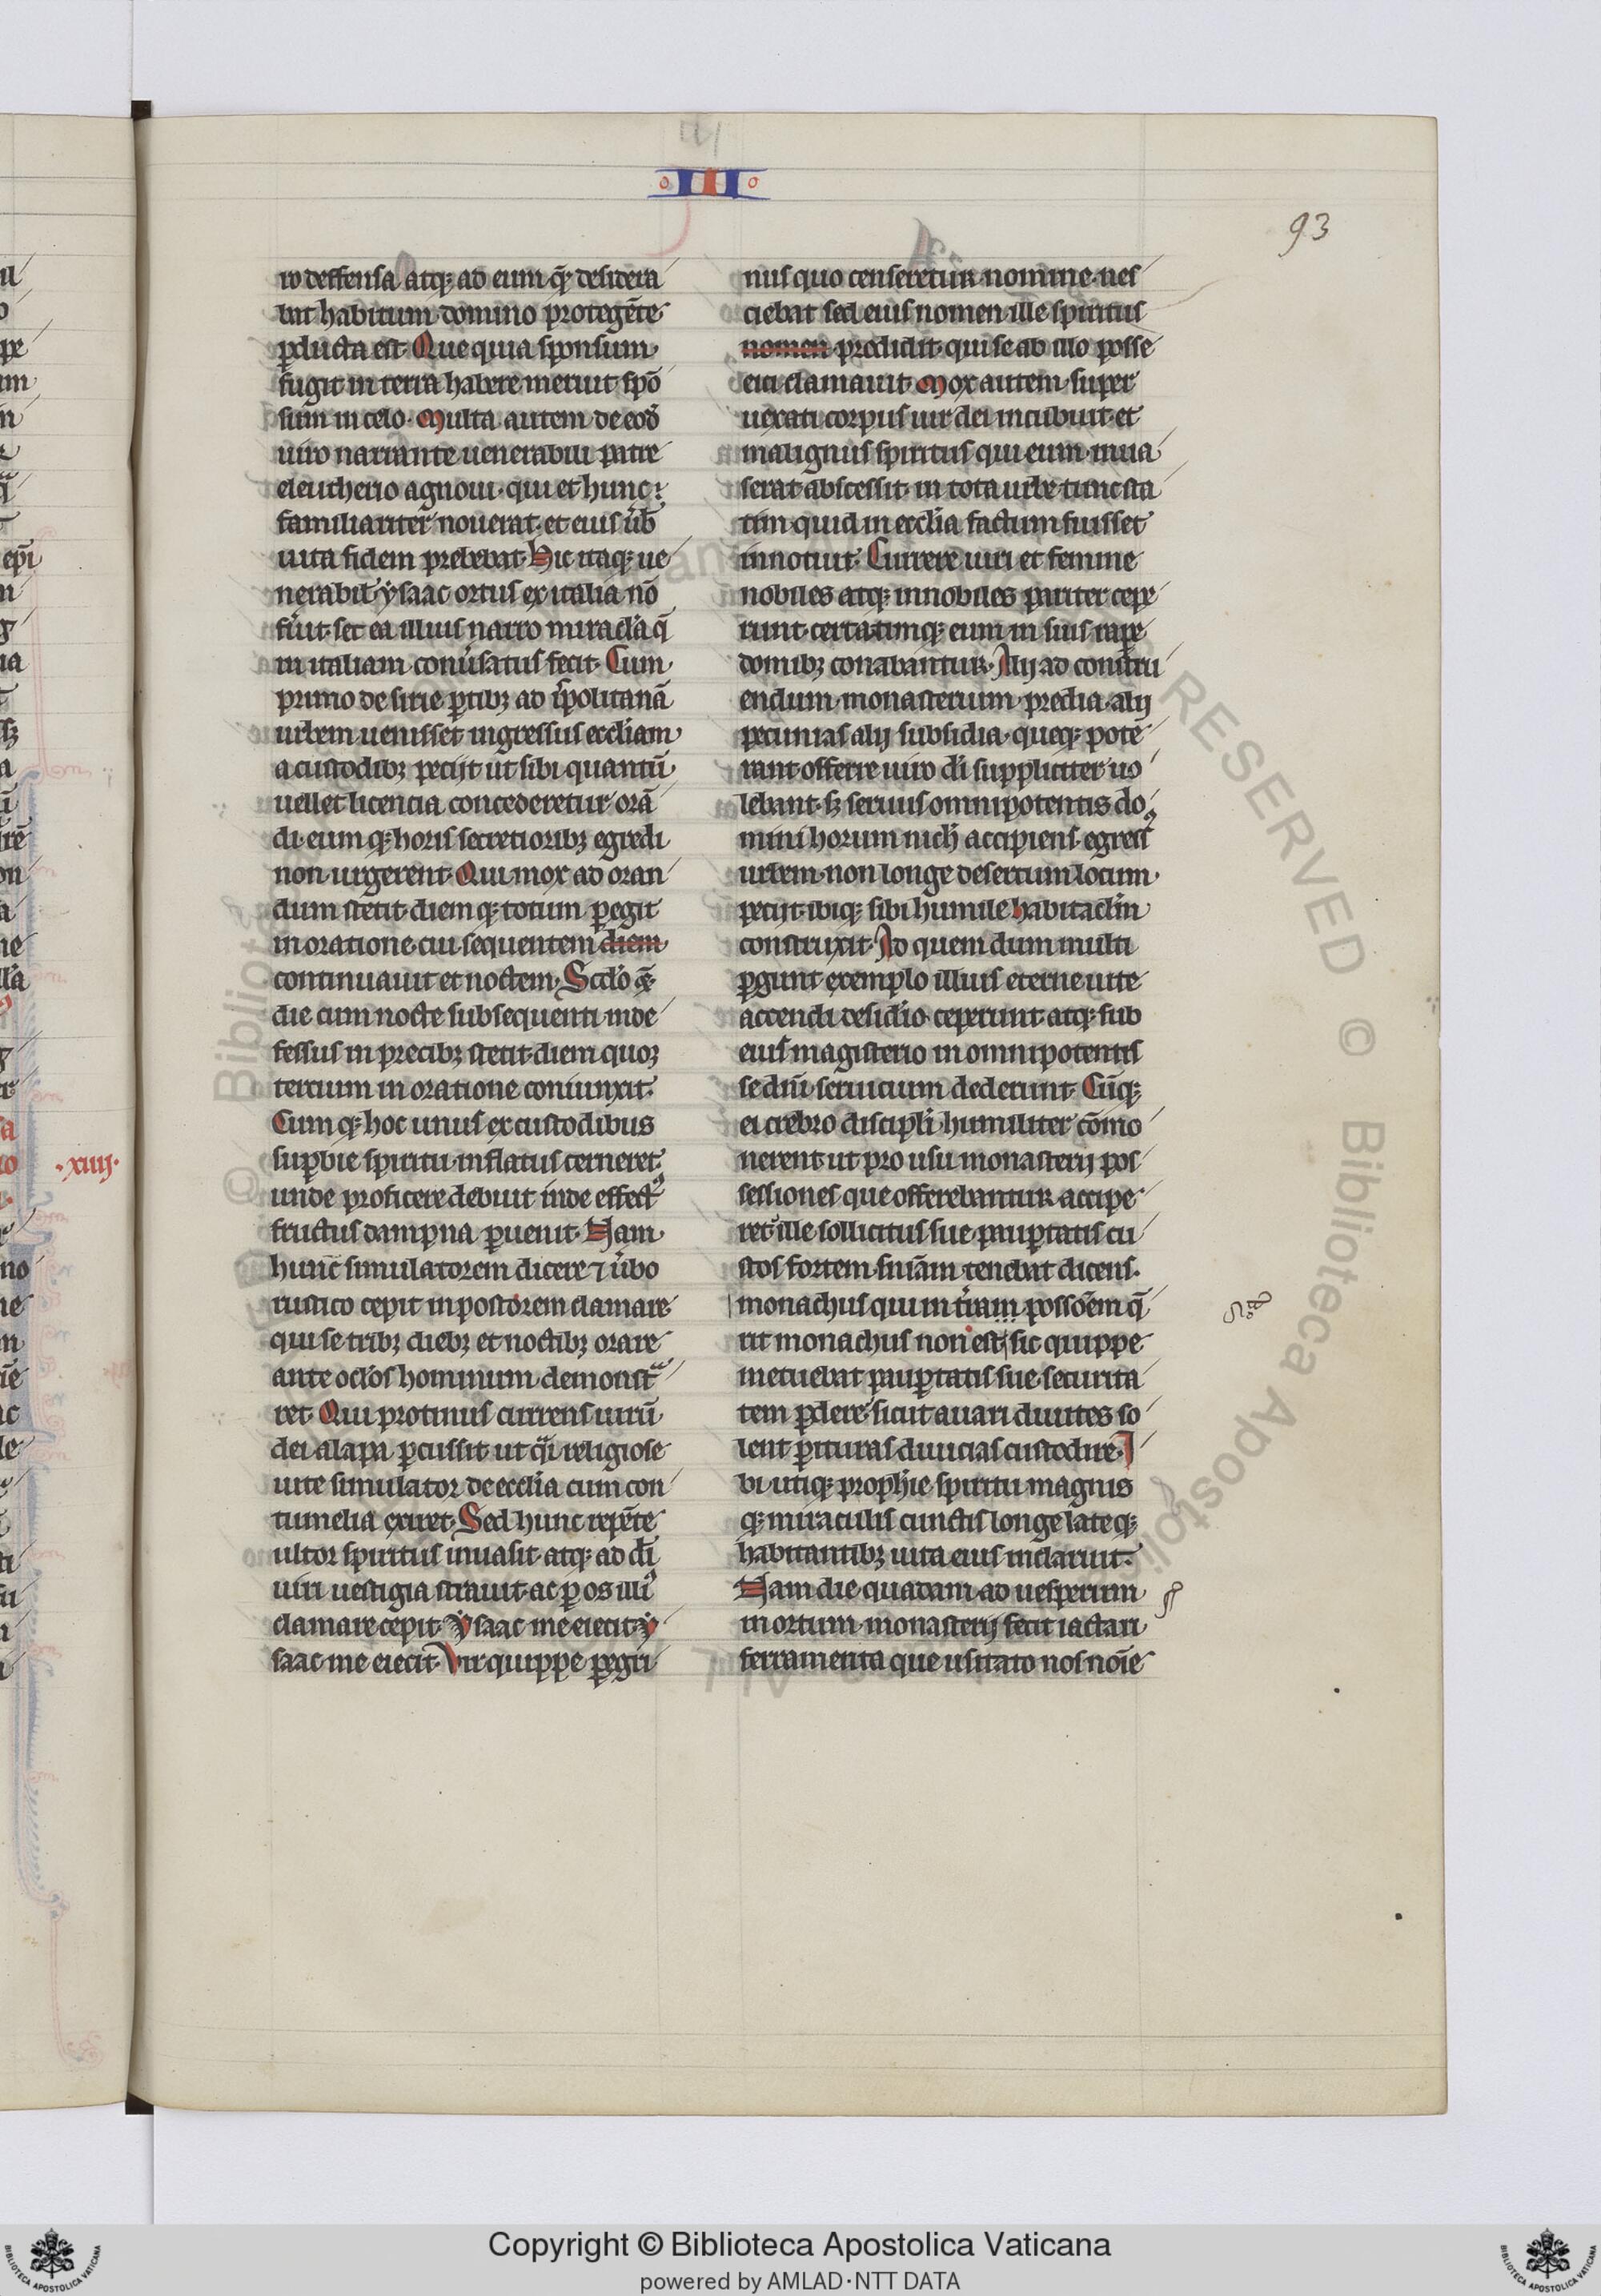 III
93
ro deffensa atq; ad eum q̄ desidera
uit habitum domino protegēte
ꝑducta est. Que quia sponsum
fugit in terra habere meruit spō
sum in celo. Multa autem de eodē
uiro narrante uenerabili patre
eleutherio agnoui. qui et hunc
familiariter nouerat. et eius ūb
uita fidem prebebat. Hic itaq; ue
nerabil ysaac ortus ex italia nō
fuit. set ea illius narro miracl'a q̄
in italiam conūsatus fecit. Cum
primo de sirie ꝑtib; ad spolitanā
urbem uenisset ingressus eccliam
a custodib; petijt ut sibi quantū
uellet licencia concederetur orā
di. eum q; horis secretiorib; egredi
non urgerent. Qui mox ad oran
dum stetit. diem q; totum ꝑegit
in oratione. cui sequentem diem
continuauit et noctem. Scdo q̄
die cum nocte subsequenti inde
fessus in precib; stetit. diem quoq;
tercium in oratione coniunxit.
Cum q; hoc unus ex custodibus
suꝑbie spiritu inflatus cerneret.
unde proficere debuit inde effect9
fructus dampna ꝑuenit. Nam
hunc simulatorem dicere ⁊ ūbo
rustico cepit inpostorem clamare
qui se trib; dieb; et noctib; orare
ante ocl'os hominum demonst͛a
ret. Qui protinus currens uirū
dei alapa ꝑcussit ut q̄i religiose
uite simulator de ecclia cum con
tumelia exiret. Sed hunc repēte
ultor spiritus inuasit. atq; ad dī
uiri uestigia strauit. ac ꝑ os illi9
clamare cepit. ysaac me eiecit. y
saac me eiecit. Vir quippe ꝑegri
nus quo censeretur nomine nes
ciebat sed eius nomen ille spiritus
nomen prodidit. qui se ab illo posse
eici clamauit. Mox autem super
uexati corpus uir dei incubuit. et
malignus spiritus qui eum inua
serat abscessit. in tota urbe tunc sta
tim quid in ecclia factum fuisset
innotuit. Currere uiri et femine
nobiles atq; innobiles pariter cepe
runt. certatimq; eum in suis rape
domib; conabantur. Alij ad constru
endum monasterium predia. alij
pecunias alij subsidia queq; pote
rant offerre uiro dī suppliciter uo
lebant. s; seruus omnipotentis do
mini horum nich̄ accipiens. egress9
urbem non longe desertum locum
petijt. ibiq; sibi humile habitacl'm
construxit. Ad quem dum multi
ꝑgunt exemplo illius eterne uite
accendi desidio ceperunt. atq; sub
eius magisterio in omnipotentis
se dnī seruicium dederunt. Cūq;
ei crebro discipli humiliter cōmo
nerent ut pro usu monasterij pos
sessiones que offerebantur accipe
ret. ille sollicitus sue pauꝑtatis cu
stos fortem sniam tenebat dicens.
monachus qui in t̄ram possoēm q̄
rit monachus non est. sic quippe
metuebat pauꝑtatis sue securita
tem ꝑdere. sicut auari diuites so
lent ꝑituras diuicias custodire. I
bi utiq; prophie spiritu magnis
q; miraculis cunctis longe lateq;
habitantib; uita eius inclaruit.
Nam die quadam ad uesperum
in ortum monasterij fecit iactari
ferramenta que usitato nos noīe
.xiiij.
Copyright © Biblioteca Apostolica Vaticana
powered by AMLAD·NTT DATA